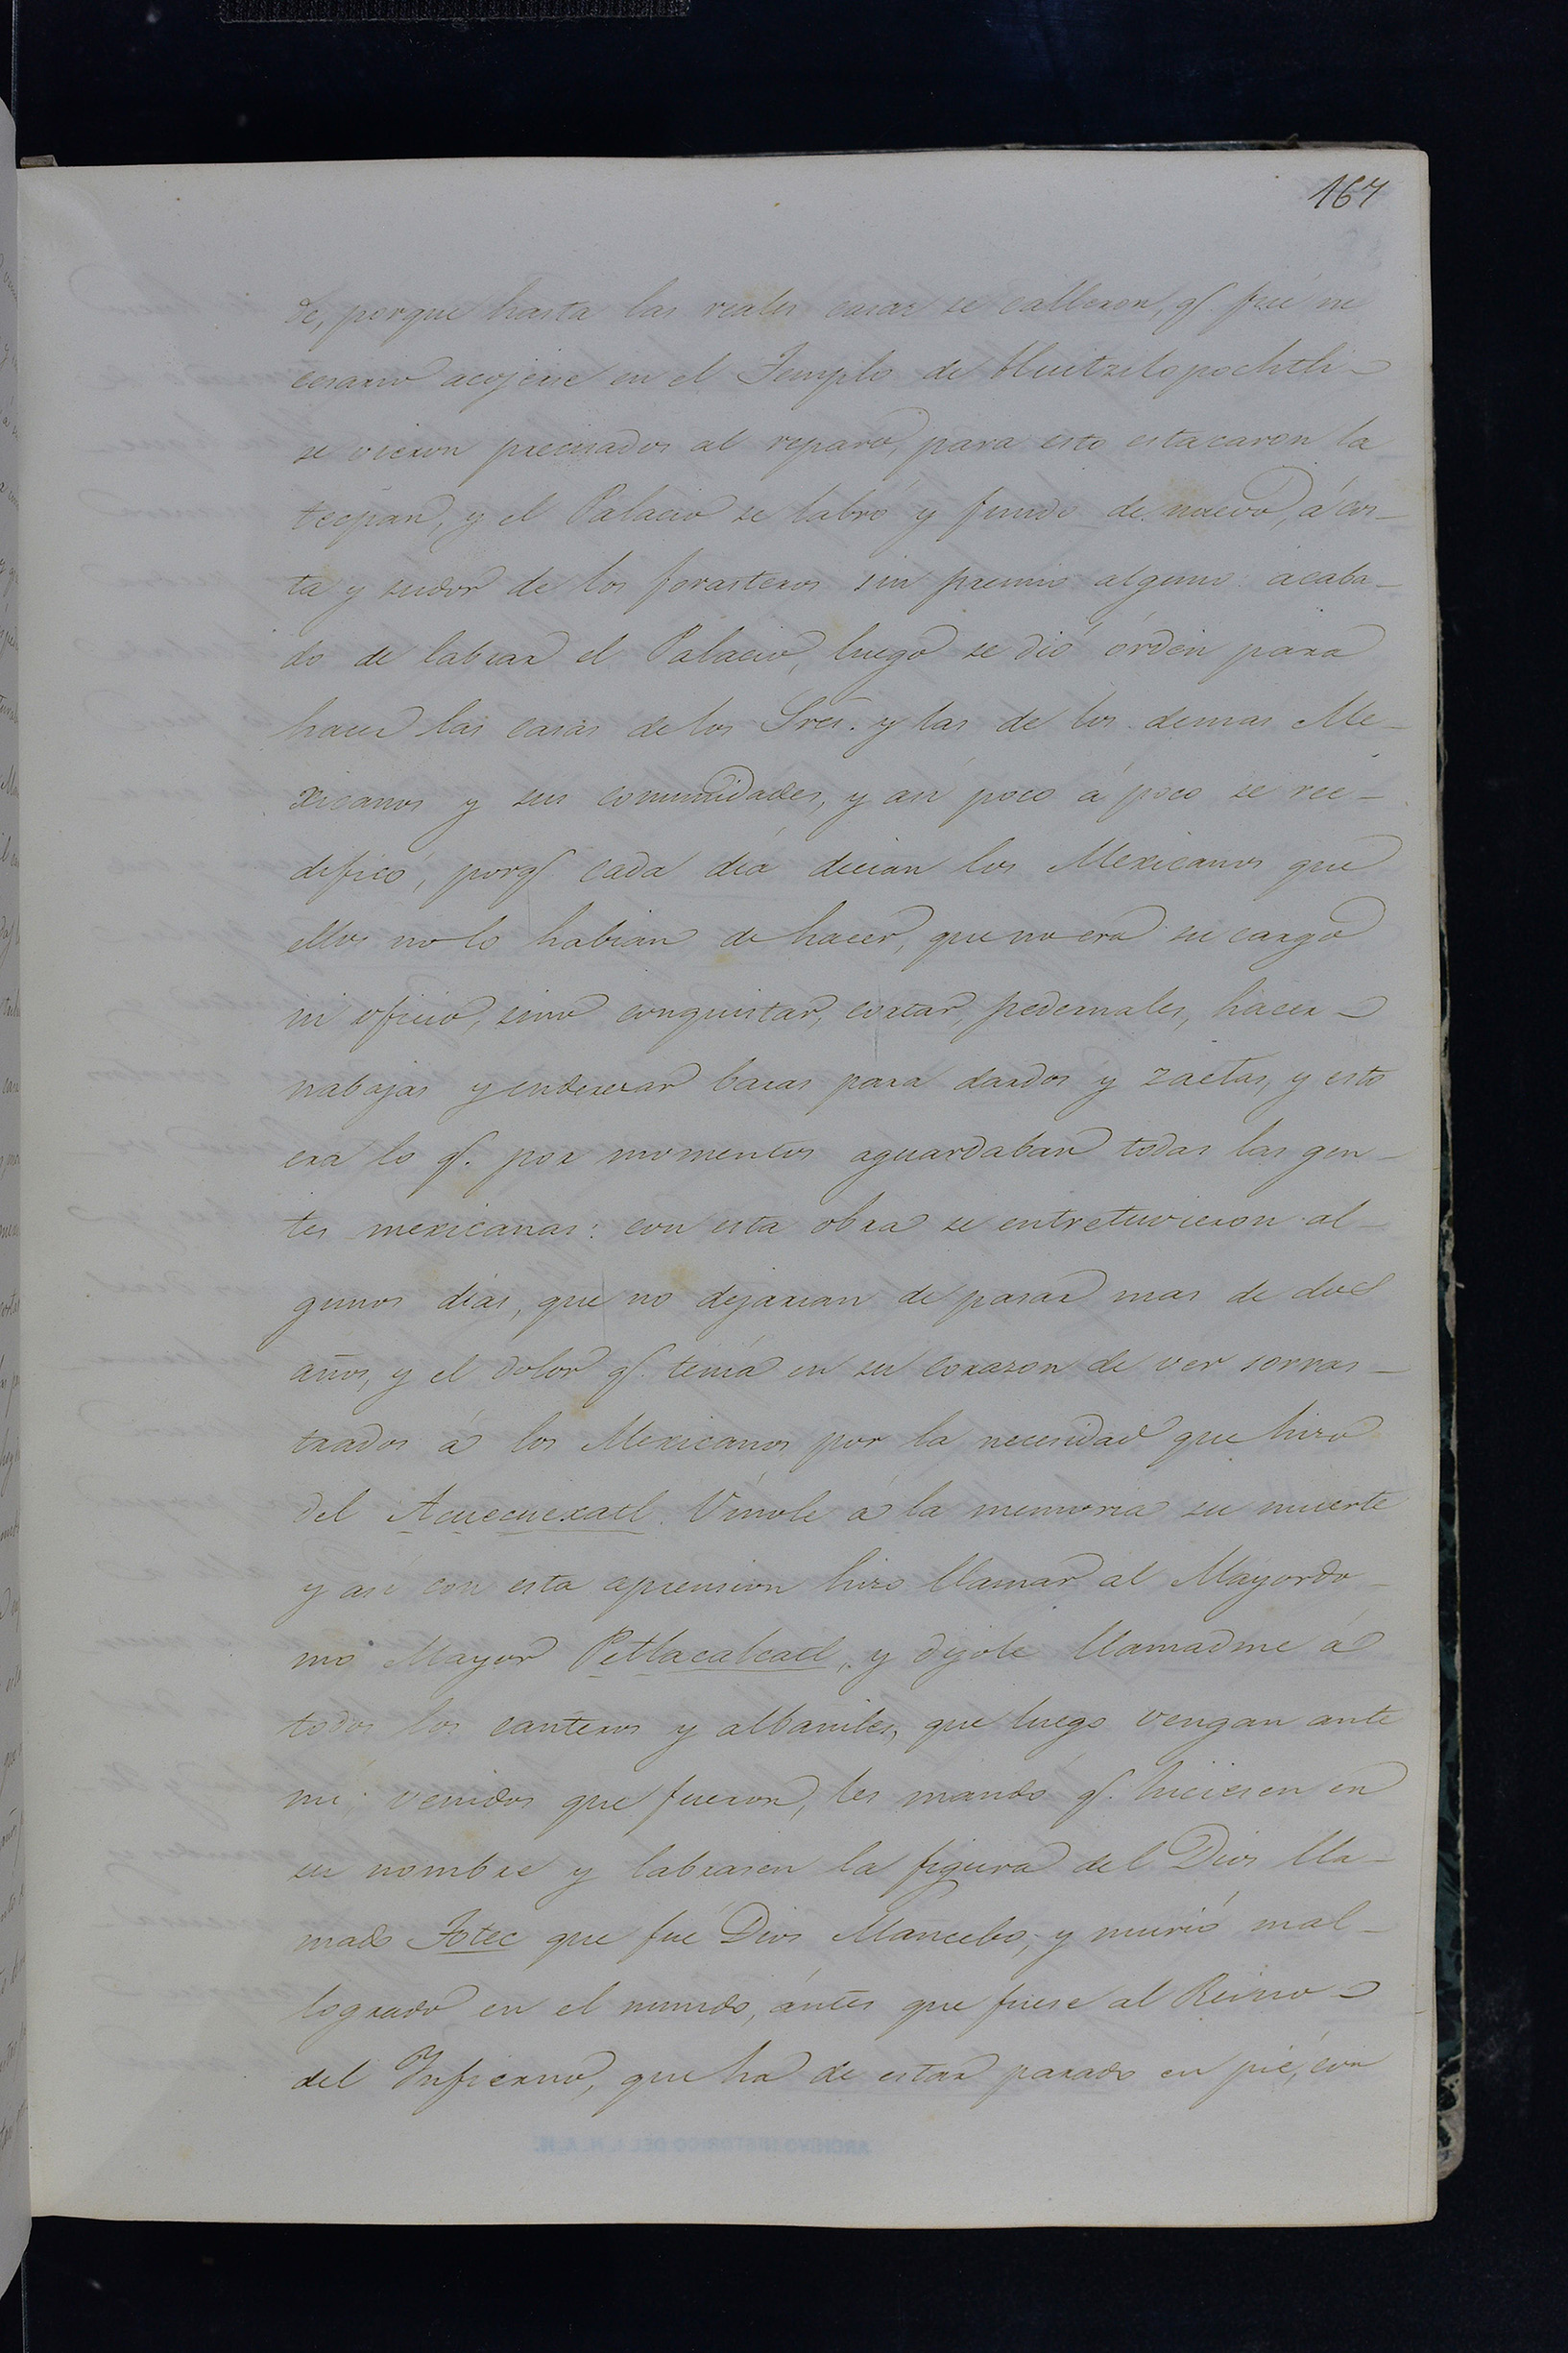 167
de, porque hasta las reales casas se calleron, q.ᵉ fué ne
cesario acojerse en el Templo de Huitzilopochtli
se vieron precisados al reparo, para esto estacaron la
tecpan, y el Palacio se labró y fundó de nuevo, á cos-
ta y sudor de los forasteros sin premio alguno: acaba-
do de labrar el Palacio, luego se dió órden para
hacer las casas de los Sres. y las de los demas Me-
xicanos y sus comunidades, y así poco á poco se ree-
dificó, porq.ᵉ cada dia decian los Mexicanos que
ellos no lo habian de hacer, que no era su cargo
ni oficio, sino conquistar, cortar, pedernales, hacer
nabajas y enderezar baras para dardos y zaetas, y esto
era lo q.ᵉ por momentos aguardaban todas las gen-
tes mexicanas: con esta obra se entretuvieron al-
gunos dias, que no dejarian de pasar mas de dos
años, y el dolor q.ᵉ tenia en su corazon de ver sorras-
trados á los Mexicanos por la necesidad que hizo
del Acuecuexatl. Vinole á la memoria su muerte
y así con esta aprension hizo llamar al Mayordo-
mo Mayor Petlacalcatl, y dijole llamadme á
todos los canteros y albaniles, que luego vengan ante
mi: venidos que fueron, les mandó q.ᵉ hiciesen en
su nombre y labrasen la figura del Dios lla-
mado Totec que fué Dios Mancebo, y murió mal-
logrado en el mundo, ántes que fuese al Reino
del Infierno, que ha de estar parado en pié, con
ARCHIVO HISTORICO DEL I. N. A. H.